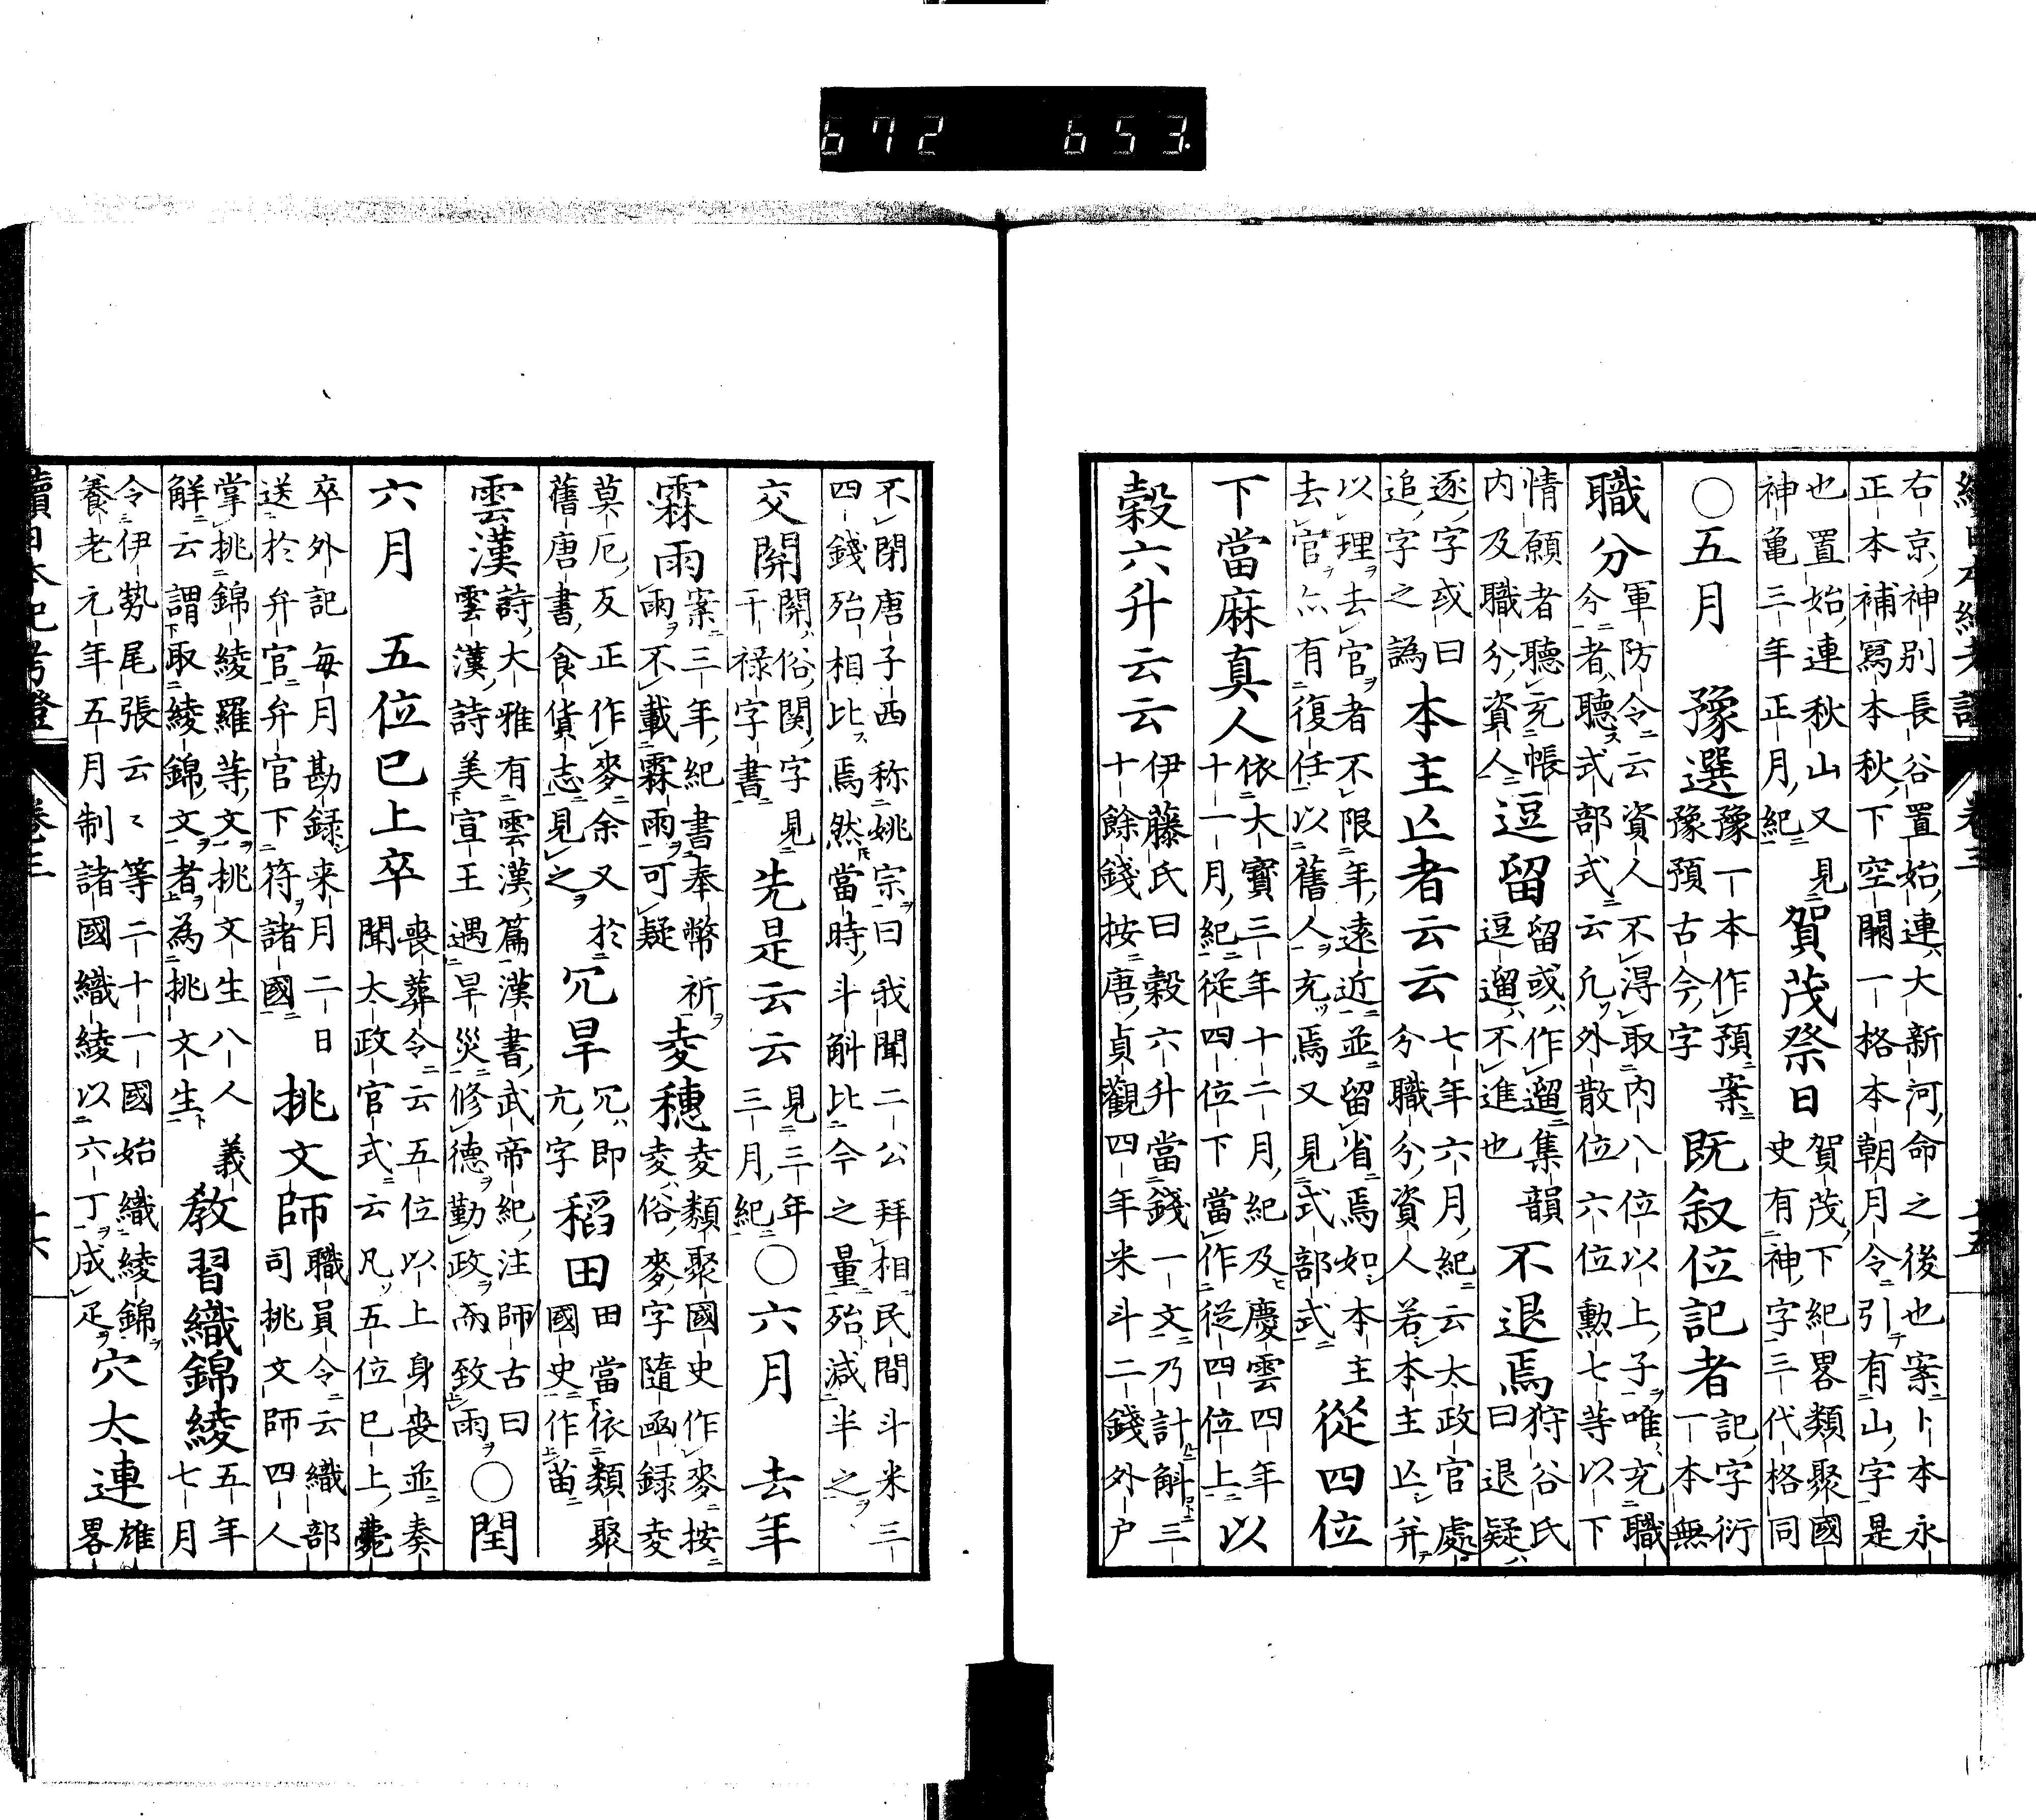 672 653.
右京神別長谷置始連ハ大新河命之後也案ニト本永
正本補寫本秋下空闕一格本朝月令ニ引テ有山字是
也置始連秋山又見神亀三年正月紀 賀茂祭日 賀茂下紀畧類聚國史有神字三代格同
○五月 豫選 豫一本作預案豫預古今字 既叙位記者 記字衍一本無
職分 軍防令云資人不得取内八位以上子唯充職分者聽式部式云凡外散位六位勲七等以下
情願者聽充帳内及職分資人 逗留 留或作遛集韻逗遛不進也 不退焉 狩谷氏曰退疑ハ
逐字或曰追字之譌 本主亡者云云 七年六月紀云太政官處分職分資人若本主亡并
以理去官者不限年遠近並留省焉如本主去官亦有復任以舊人充焉又見式部式 從四位
下當麻真人 依大寶三年十二月紀及慶雲四年十一月紀從四位下當作從四位上 以
穀六升云云 伊藤氏曰穀六升當錢一文乃計斛三十餘錢按唐貞觀四年米斗二錢外戸
不閉唐子西称姚宗曰我聞二公拜相民間斗米三四錢殆相比焉然當時斗斛比今之量殆減半之
交關 關俗関字見干禄字書 先是云云 見三年三月紀 ○六月 去年
霖雨 案三年紀書奉幣祈雨不載霖雨可疑 麦穗 麦類聚國史作麥按麦俗麥字隨函録麦
莫厄反正作麥余又於舊唐書食貨志見之 冗旱 冗即亢字 稻田 田當依類聚國史作苗
雲漢 詩大雅有雲漢篇漢書武帝紀注師古曰雲漢詩美宣王遇旱災修德勤政而致雨 ○閏
六月 五位已上卒 喪葬令云五位以上身喪並奏聞太政官式云凡五位已上薨
卒外記毎月勘録来月二日送於弁官弁官下符諸國 挑文師 職員令云織部司挑文師四人
掌挑錦綾羅等文挑文生八人義解云謂取綾錦文者為挑文生 教習織錦綾 五年七月
令伊勢尾張云々等二十一國始織綾錦養老元年五月制諸國織綾以六丁成疋 穴太連 雄畧
卷三